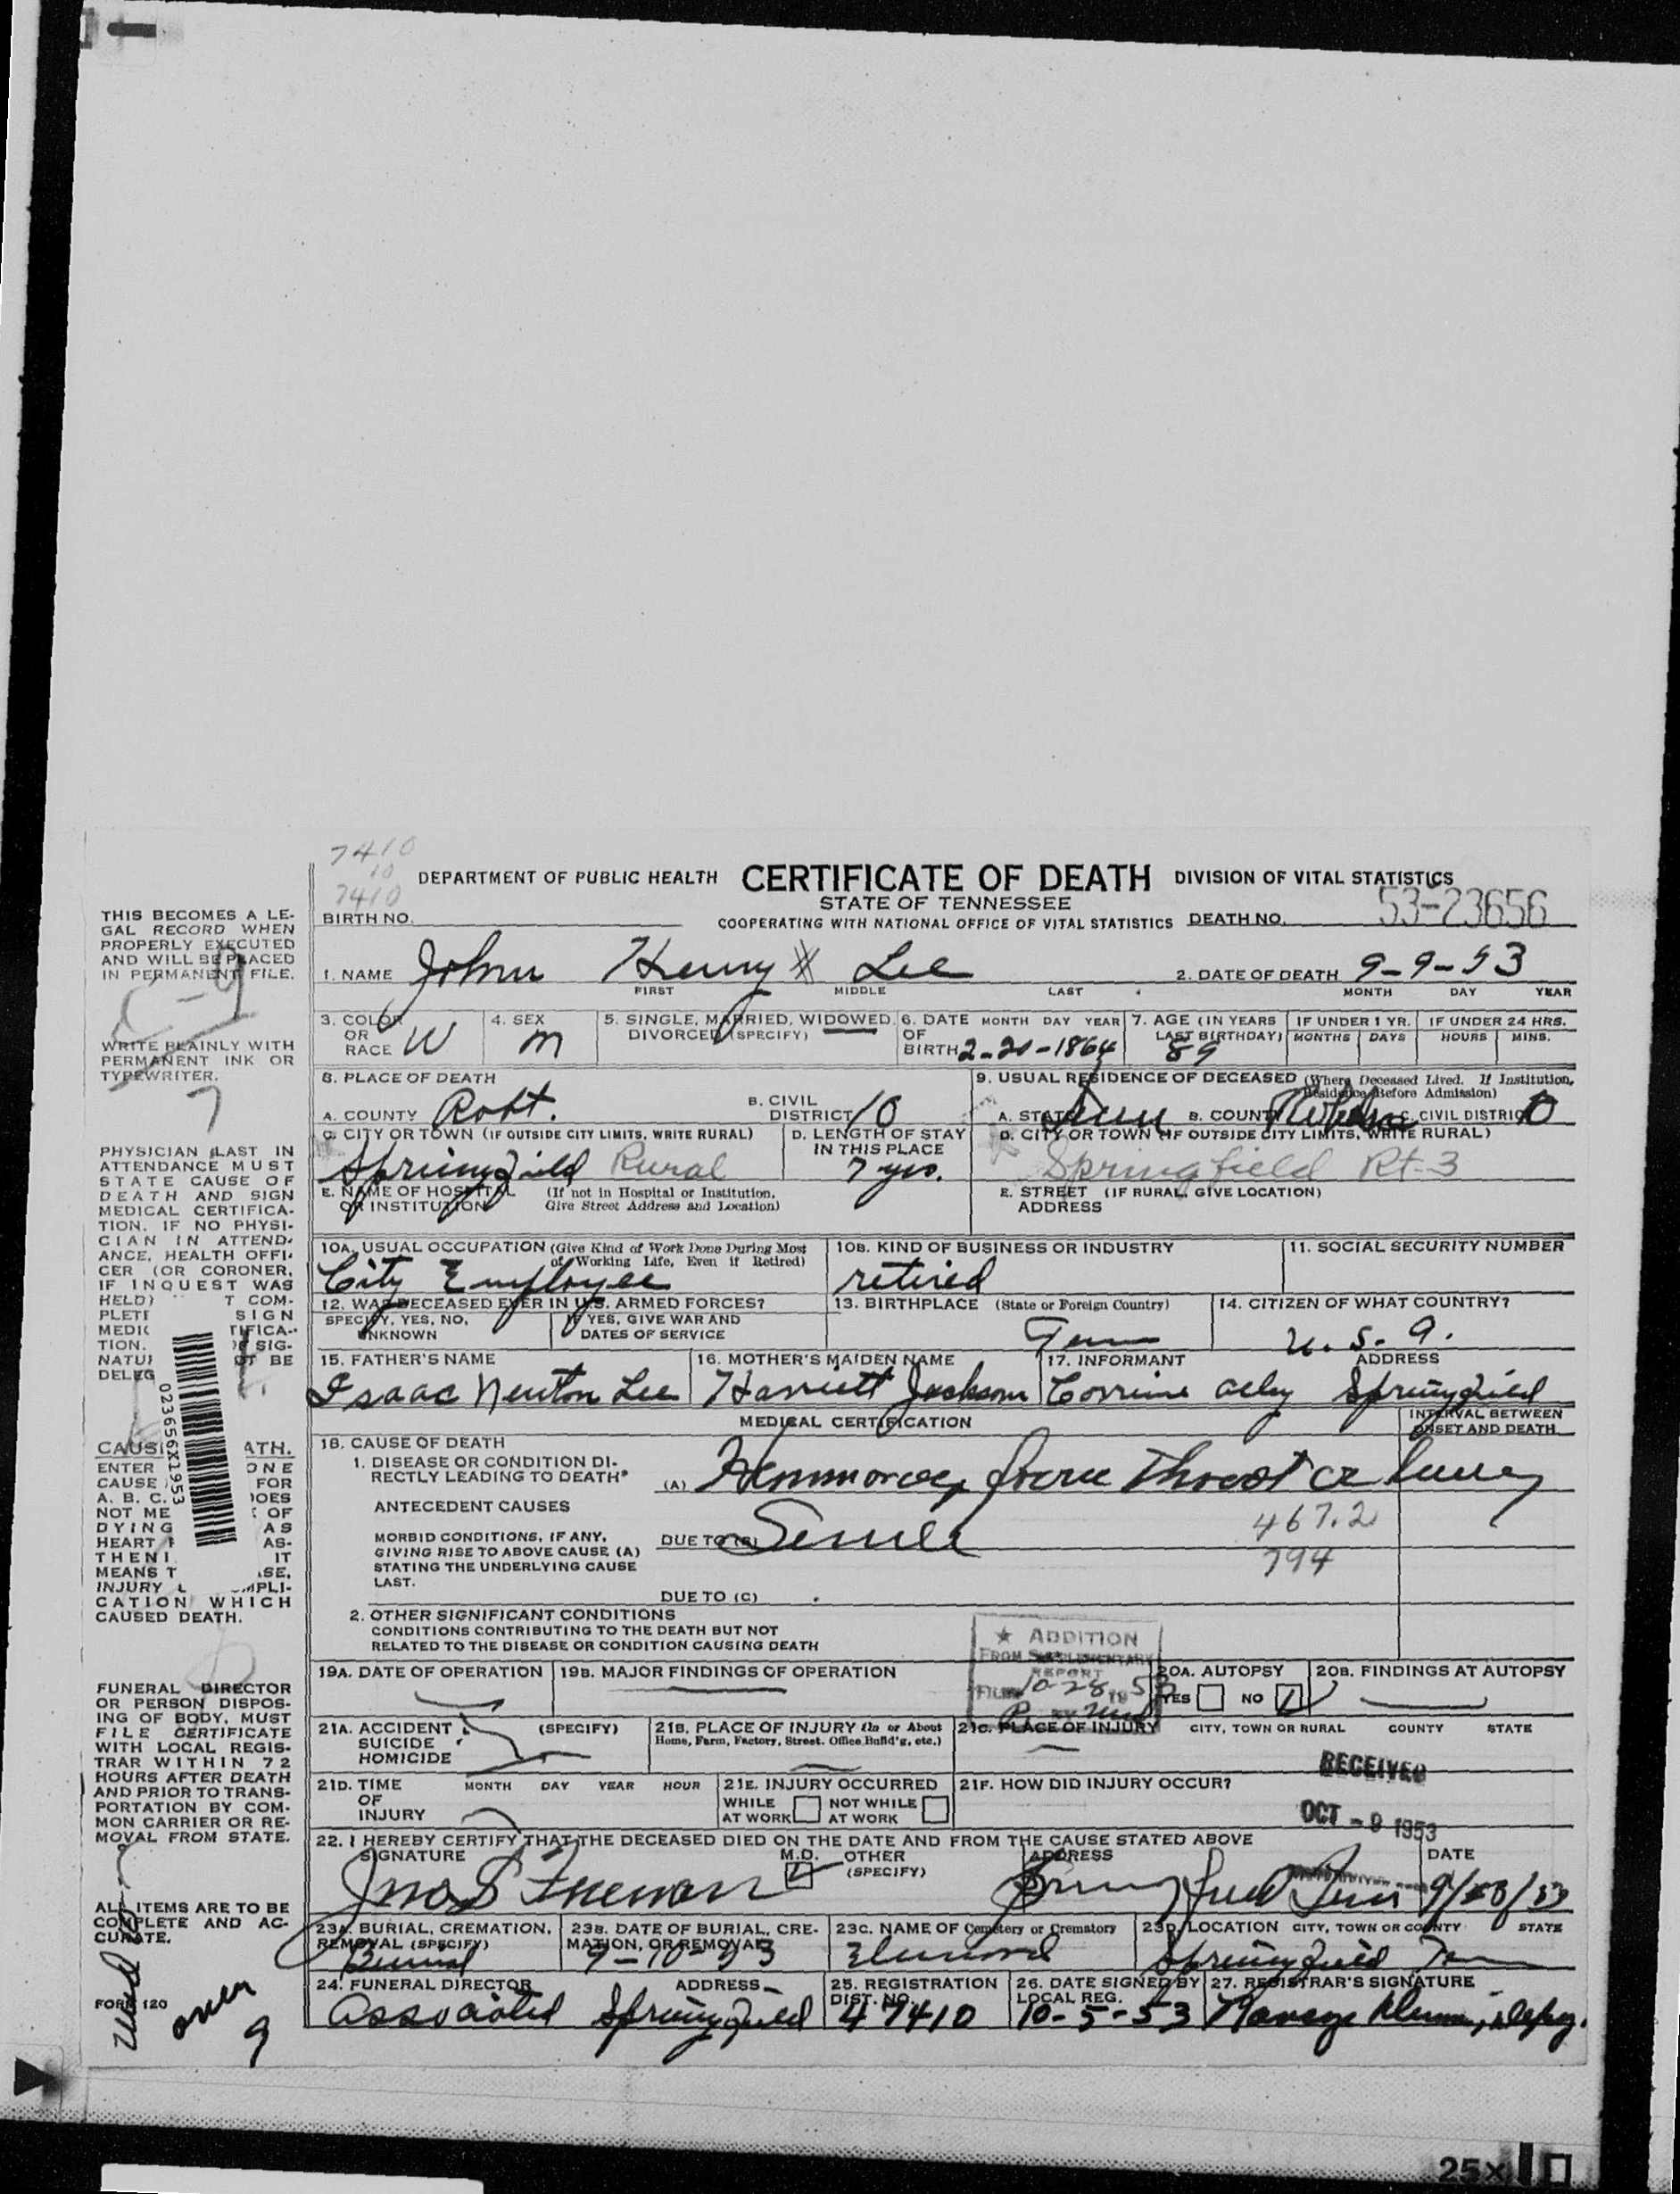 7410
10
7410
DEPARTMENT OF PUBLIC HEALTH CERTIFICATE OF DEATH DIVISION OF VITAL STATISTICS
STATE OF TENNESSEE
BIRTH NO. COOPERATING WITH NATIONAL OFFICE OF VITAL STATISTICS DEATH NO. 53-23656
1. NAME John Henry Lee 2. DATE OF DEATH 9-9-53
FIRST MIDDLE LAST MONTH DAY YEAR
3. COLOR OR RACE W 4. SEX M 5. SINGLE, MARRIED, WIDOWED, DIVORCED (SPECIFY) 6. DATE OF BIRTH MONTH DAY YEAR 2-20-1864 7. AGE (IN YEARS LAST BIRTHDAY) 89 IF UNDER 1 YR. MONTHS DAYS IF UNDER 24 HRS. HOURS MINS.
8. PLACE OF DEATH 9. USUAL RESIDENCE OF DECEASED (Where Deceased Lived. If Institution, Residence Before Admission)
A. COUNTY Robt. B. CIVIL DISTRICT 10 A. STATE Tenn B. COUNTY C. CIVIL DISTRICT
C. CITY OR TOWN (IF OUTSIDE CITY LIMITS, WRITE RURAL) D. LENGTH OF STAY IN THIS PLACE D. CITY OR TOWN (IF OUTSIDE CITY LIMITS, WRITE RURAL)
Springfield Rural 7 yrs. Springfield Rt-3
E. NAME OF HOSPITAL OR INSTITUTION (If not in Hospital or Institution, Give Street Address and Location) E. STREET ADDRESS (IF RURAL, GIVE LOCATION)
10A. USUAL OCCUPATION (Give Kind of Work Done During Most of Working Life, Even if Retired) 10B. KIND OF BUSINESS OR INDUSTRY 11. SOCIAL SECURITY NUMBER
City Employee retired
12. WAS DECEASED EVER IN U.S. ARMED FORCES? 13. BIRTHPLACE (State or Foreign Country) 14. CITIZEN OF WHAT COUNTRY?
SPECIFY, YES, NO, UNKNOWN IF YES, GIVE WAR AND DATES OF SERVICE Tenn U.S.A.
15. FATHER'S NAME 16. MOTHER'S MAIDEN NAME 17. INFORMANT ADDRESS
Isaac Newton Lee Harriett Jackson Corrine Springfield
MEDICAL CERTIFICATION INTERVAL BETWEEN ONSET AND DEATH
18. CAUSE OF DEATH
1. DISEASE OR CONDITION DIRECTLY LEADING TO DEATH* (A) from Throat
ANTECEDENT CAUSES
467.2
MORBID CONDITIONS, IF ANY, GIVING RISE TO ABOVE CAUSE (A) STATING THE UNDERLYING CAUSE LAST. DUE TO (B)
794
DUE TO (C)
2. OTHER SIGNIFICANT CONDITIONS
CONDITIONS CONTRIBUTING TO THE DEATH BUT NOT
RELATED TO THE DISEASE OR CONDITION CAUSING DEATH
ADDITION
FROM SUPPLEMENTARY
REPORT
FILED 10-28 1953
19A. DATE OF OPERATION 19B. MAJOR FINDINGS OF OPERATION 20A. AUTOPSY YES NO 20B. FINDINGS AT AUTOPSY
21A. ACCIDENT SUICIDE HOMICIDE (SPECIFY) 21B. PLACE OF INJURY (In or About Home, Farm, Factory, Street, Office Build'g, etc.) 21C. PLACE OF INJURY CITY, TOWN OR RURAL COUNTY STATE
RECEIVED
21D. TIME OF INJURY MONTH DAY YEAR HOUR 21E. INJURY OCCURRED WHILE AT WORK NOT WHILE AT WORK 21F. HOW DID INJURY OCCUR?
OCT - 9 1953
22. I HEREBY CERTIFY THAT THE DECEASED DIED ON THE DATE AND FROM THE CAUSE STATED ABOVE
SIGNATURE M.D. OTHER (SPECIFY) ADDRESS DATE
Jno S Freeman Springfield Tenn
23A. BURIAL, CREMATION, REMOVAL (SPECIFY) 23B. DATE OF BURIAL, CREMATION, OR REMOVAL 23C. NAME OF Cemetery or Crematory 23D. LOCATION CITY, TOWN OR COUNTY STATE
Burial 9-10-53 Elmwood Springfield Tenn
24. FUNERAL DIRECTOR ADDRESS 25. REGISTRATION DIST. NO. 26. DATE SIGNED BY LOCAL REG. 27. REGISTRAR'S SIGNATURE
Associated Springfield 47410 10-5-53
THIS BECOMES A LE-
GAL RECORD WHEN
PROPERLY EXECUTED
AND WILL BE PLACED
IN PERMANENT FILE.
WRITE PLAINLY WITH
PERMANENT INK OR
TYPEWRITER.
7
PHYSICIAN LAST IN
ATTENDANCE MUST
STATE CAUSE OF
DEATH AND SIGN
MEDICAL CERTIFICA-
TION. IF NO PHYSI-
CIAN IN ATTEND-
ANCE, HEALTH OFFI-
CER (OR CORONER,
IF INQUEST WAS
HELD) T COM-
PLETE SIGN
MEDIC TIFICA-
TION. OF SIG-
NATU OT BE
DELEG
023656X1953
CAUSE ATH.
ENTER ONE
CAUSE FOR
A. B. C. DOES
NOT ME OF
DYING AS
HEART AS-
THENI IT
MEANS T SE,
INJURY MPLI-
CATION WHICH
CAUSED DEATH.
FUNERAL DIRECTOR
OR PERSON DISPOS-
ING OF BODY, MUST
FILE CERTIFICATE
WITH LOCAL REGIS-
TRAR WITHIN 72
HOURS AFTER DEATH
AND PRIOR TO TRANS-
PORTATION BY COM-
MON CARRIER OR RE-
MOVAL FROM STATE.
ALL ITEMS ARE TO BE
COMPLETE AND AC-
CURATE.
FORM 120
over
9
25X